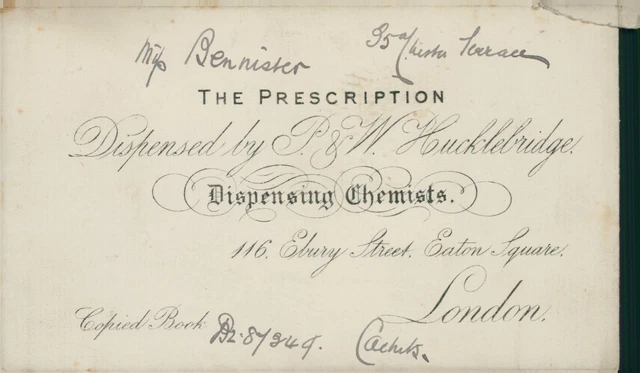 Miss Bennister 35a Chester Terrace
THE PRESCRIPTION
Dispensed by P. & W. Hucklebridge.
Dispensing Chemists.
116. Ebury Street. Eaton Square.
London.
Copied Book Cachets.